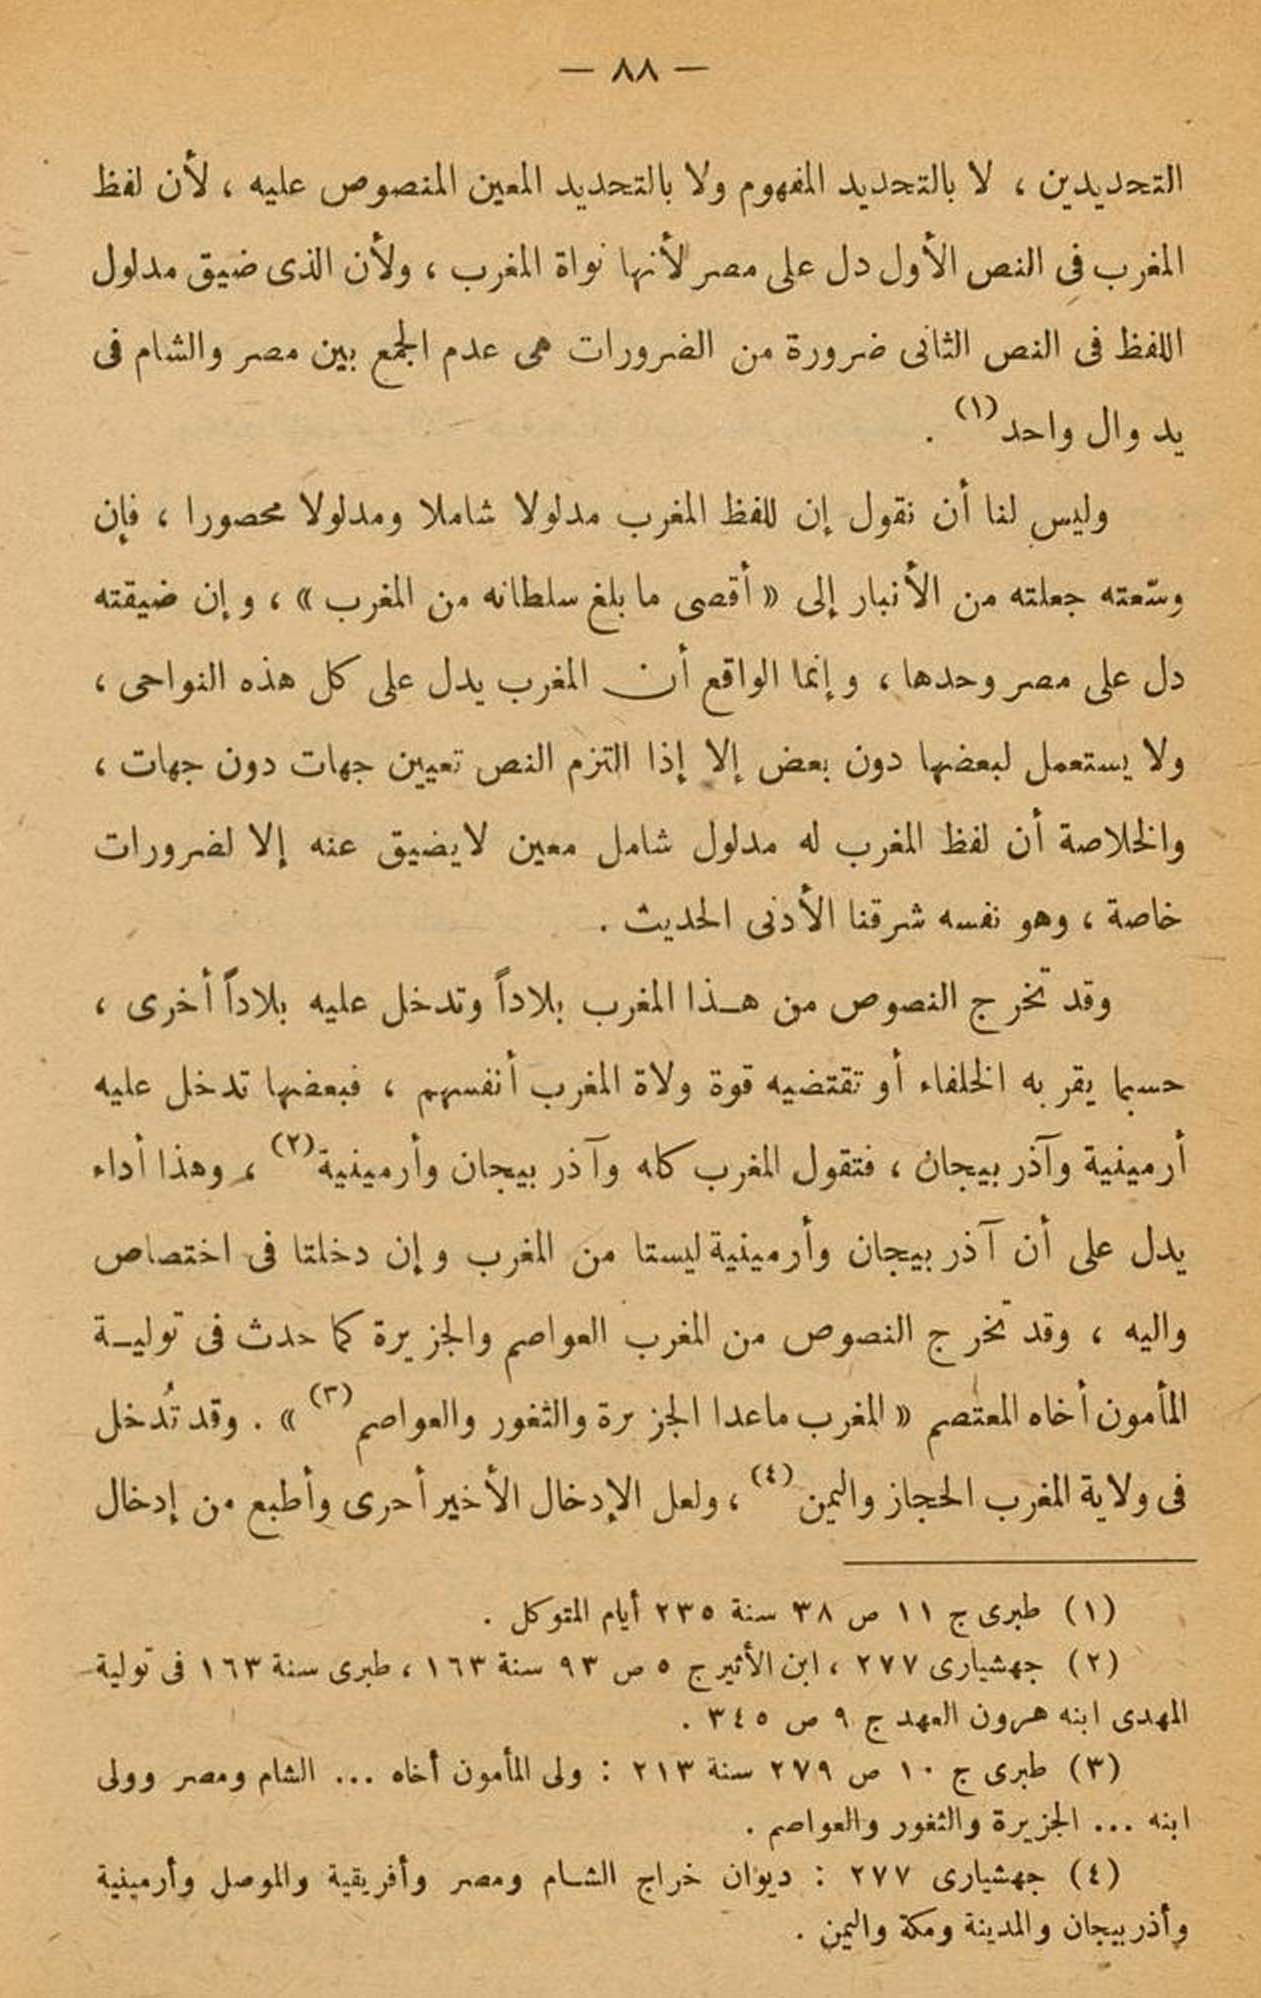 — ٨٨ —
التحديدين ، لا بالتحديد المفهوم ولا بالتحديد المعين المنصوص عليه ، لأن لفظ
المغرب فى النص الأول دل على مصر لأنها نواة المغرب ، ولأن الذى ضيق مدلول
اللفظ فى النص الثانى ضرورة من الضرورات هى عدم الجمع بين مصر والشام فى
يد وال واحد (١) .
وليس لنا أن نقول إن للفظ المغرب مدلولا شاملا ومدلولا محصورا ، فإن
وسّعته جعلته من الأنبار إلى « أقصى ما بلغ سلطانه من المغرب » ، وإن ضيقته
دل على مصر وحدها ، وإنما الواقع أن المغرب يدل على كل هذه النواحى ،
ولا يستعمل لبعضها دون بعض إلا إذا التزم النص تعيين جهات دون جهات ،
والخلاصة أن لفظ المغرب له مدلول شامل معين لا يضيق عنه إلا لضرورات
خاصة ، وهو نفسه شرقنا الأدنى الحديث .
وقد تخرج النصوص من هـذا المغرب بلاداً وتدخل عليه بلاداً أخرى ،
حسبما يقر به الخلفاء أو تقتضيه قوة ولاة المغرب أنفسهم ، فبعضها تدخل عليه
أرمينية وآذر بيجان ، فتقول المغرب كله وآذر بيجان وأرمينية (٢) ، وهذا أداء
يدل على أن آذر بيجان وأرمينية ليستا من المغرب وإن دخلتا فى اختصاص
واليه ، وقد تخرج النصوص من المغرب العواصم والجزيرة كما حدث فى توليـة
المأمون أخاه المعتصم « المغرب ماعدا الجزيرة والثغور والعواصم (٣) » . وقد تُدخل
فى ولاية المغرب الحجاز واليمن (٤) ، ولعل الإدخال الأخير أحرى وأطبع من إدخال
(١) طبرى ج ١١ ص ٣٨ سنة ٢٣٥ أيام المتوكل .
(٢) جهشيارى ٢٧٧ ، ابن الأثير ج ٥ ص ٩٣ سنة ١٦٣ ، طبرى سنة ١٦٣ فى تولية
المهدى ابنه هرون العهد ج ٩ ص ٣٤٥ .
(٣) طبرى ج ١٠ ص ٢٧٩ سنة ٢١٣ : ولى المأمون أخاه ... الشام ومصر وولى
ابنه ... الجزيرة والثغور والعواصم .
(٤) جهشيارى ٢٧٧ : ديوان خراج الشـام ومصر وأفريقية والموصل وأرمينية
وأذربيجان والمدينة ومكة واليمن .